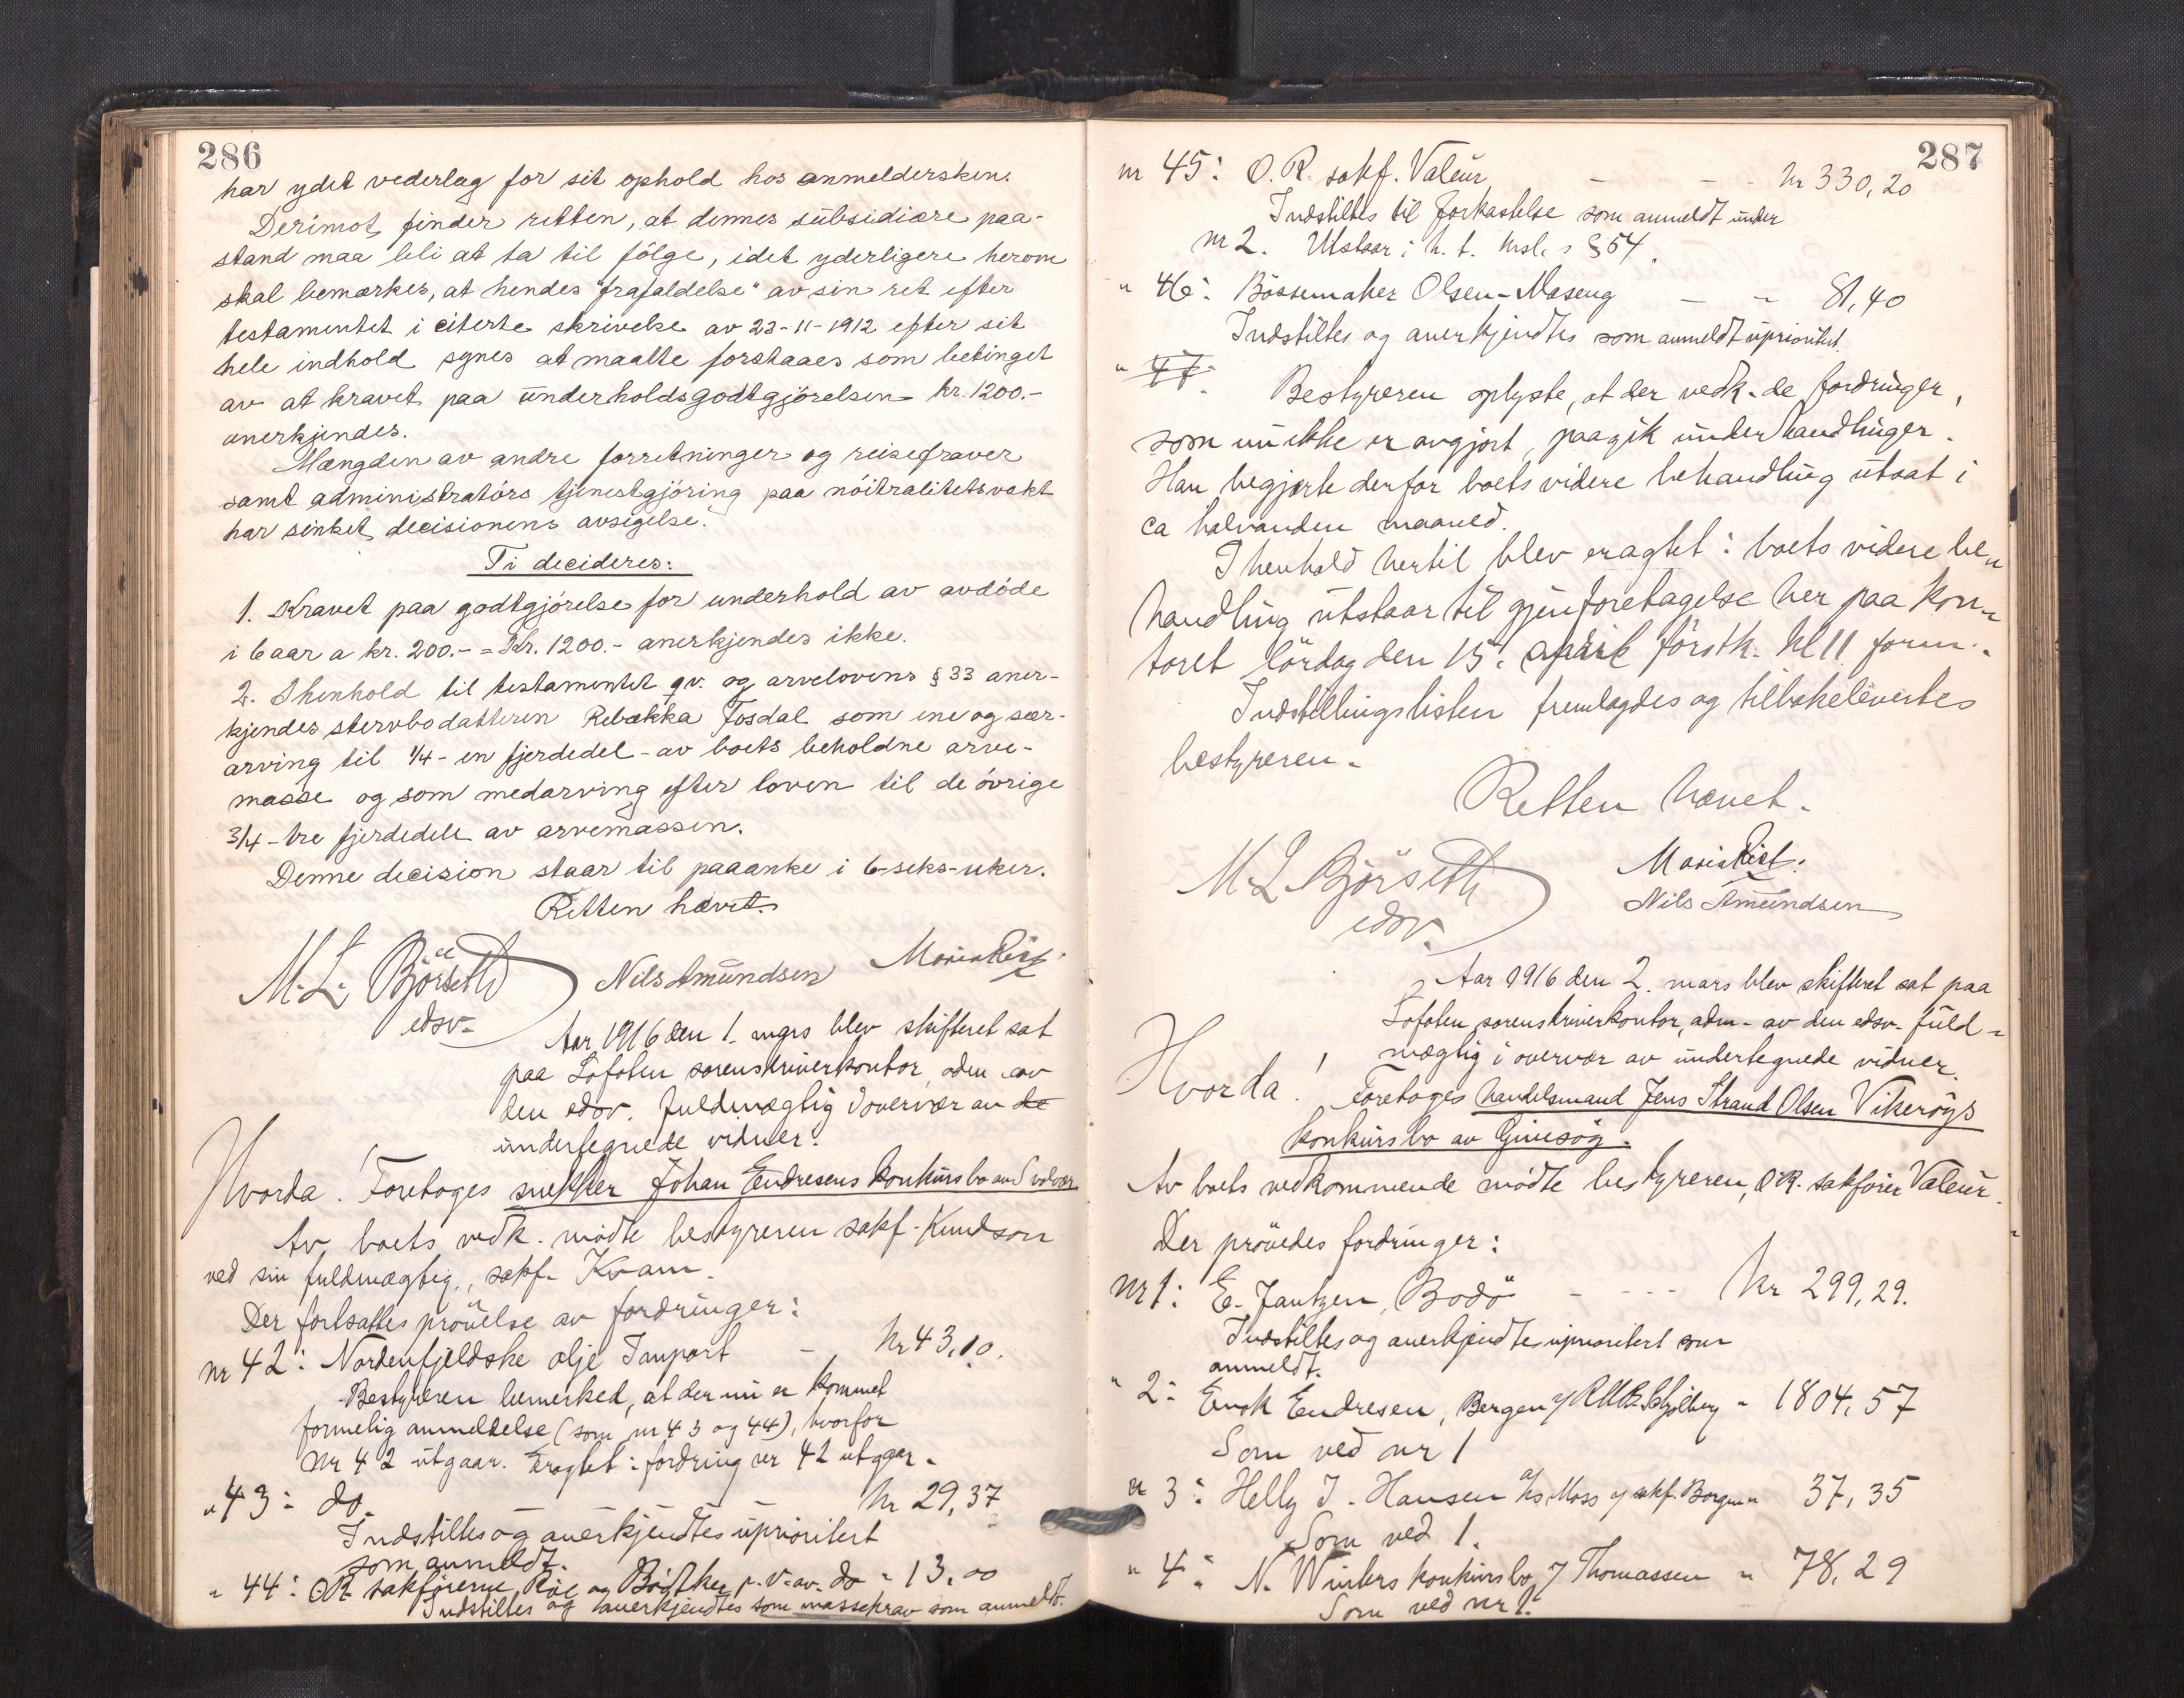 286
har ydet vederlag for sit ophold hos anmeldersken.
Derimot finder retten, at dennes subsidiære paa-
stand maa bli at ta til følge, idet yderligere herom
skal bemærkes, at hendes "frafaldelse" av sin ret efter
testamentet i citerte skrivelse av 23-11-1912 efter sit
hele indhold synes at maatte forstaaes som betinget
av at kravet paa underholdsgodtgjörelsen kr. 1200.-
anerkjendes.
Mængden av andre forretninger og reisefravær
samt administrators tjenestgjöring paa nöitralitetsvakt
har sinket decisionens avsigelse.
Ti decideres:
1. Kravet paa godtgjörelse for underhold av avdöde
i 6 aar a kr. 200.- = Kr. 1200.- anerkjendes ikke.
2. I henhold til testamentet qv. og arvelovens § 33 aner-
kjendes stervbodatteren Rebækka Fosdal som ene og sær-
arving til 1/4 - en fjerdedel - av boets beholdne arve-
masse og som medarving efter loven til de övrige
3/4 - tre fjerdedele av arvemassen.
Denne decision staar til paaanke i 6-seks-uker.
Retten hævet.
M. L. Björseth
edsv.
Nils Amundsen
Aar 1916 den 1. mars blev skifteret sat
paa Lofoten sorenskriverkontor, adm. av
den edsv. fuldmægtig i overvær av de
undertegnede vidner.
Hvorda! Foretoges snekker Johan Endresens konkursbo av Svolvær
Av boets vedk. mödte bestyreren sakf. Knudson
ved sin fuldmægtig, sakf. Kvam.
Der fortsattes prövelse av fordringer:
nr 42: Nordenfjeldske olje Import - kr 43,10.
Bestyreren bemerked, at der nu er kommet
formelig anmeldelse (som nr 43 og 44), hvorfor
nr 42 utgaar. Eragtet: fordring nr 42 utgaar.
" 43: do. - - kr 29,37
Indstilles og anerkjendtes uprioritert
som anmeldt.
" 44: OR sakförerne Röe og Bödtker p. v. av. do " 13,00
Indstilles og anerkjendtes som massekrav som anmeldt.
287
nr 45: O. R. sakf. Valeur - - - kr 330,20
Indstilles til forkastelse som anmeldt under
nr 2. Utstaar i h. t. § 54.
" 46: Bössemaker Olsen-Moseng - " 81,40
Indstilles og anerkjendtes som anmeldt uprioritert.
" 47:
Bestyreren oplyste, at der vedk.de fordringer,
som nu ikke er avgjort, paagik underhandlinger.
Han begjærte derfor boets videre behandling utsat i
ca halvanden maaned.
I henhold hertil blev eragtet: boets videre be-
handling utstaar til gjenforetagelse her paa kon-
toret lördag den 15. april förstk. kl 11 form.
Indstillingslisten fremlagdes og tilbakelevertes
bestyreren.
Retten hævet.
M L Björseth
edsv.
Nils Amundsen
Aar 1916 den 2. mars blev skifteret sat paa
Lofoten sorenskriverkontor, adm. av den edsv. fuld-
mægtig i overvær av undertegnede vidner.
Hvorda! Foretoges handelsmand Jens Strand Olsen Vikeröys
konkursbo av Gimsöy.
Av boets vedkommende mödte bestyreren, OR. sakförer Valeur.
Der prövedes fordringer:
nr 1: E. Jantzen, Bodö - - - - kr 299,29.
Indstilles og anerkjendtes uprioritert som
anmeldt.
" 2: Endresen, Bergen - 1804,57
Som ved nr 1
" 3: Helly J. Hansen a/s Moss v/ sakf. Borgen " 37,35
Som ved 1.
" 4: N. Winthers konkursbo v/ Thomassen " 78,29
Som ved nr 1.